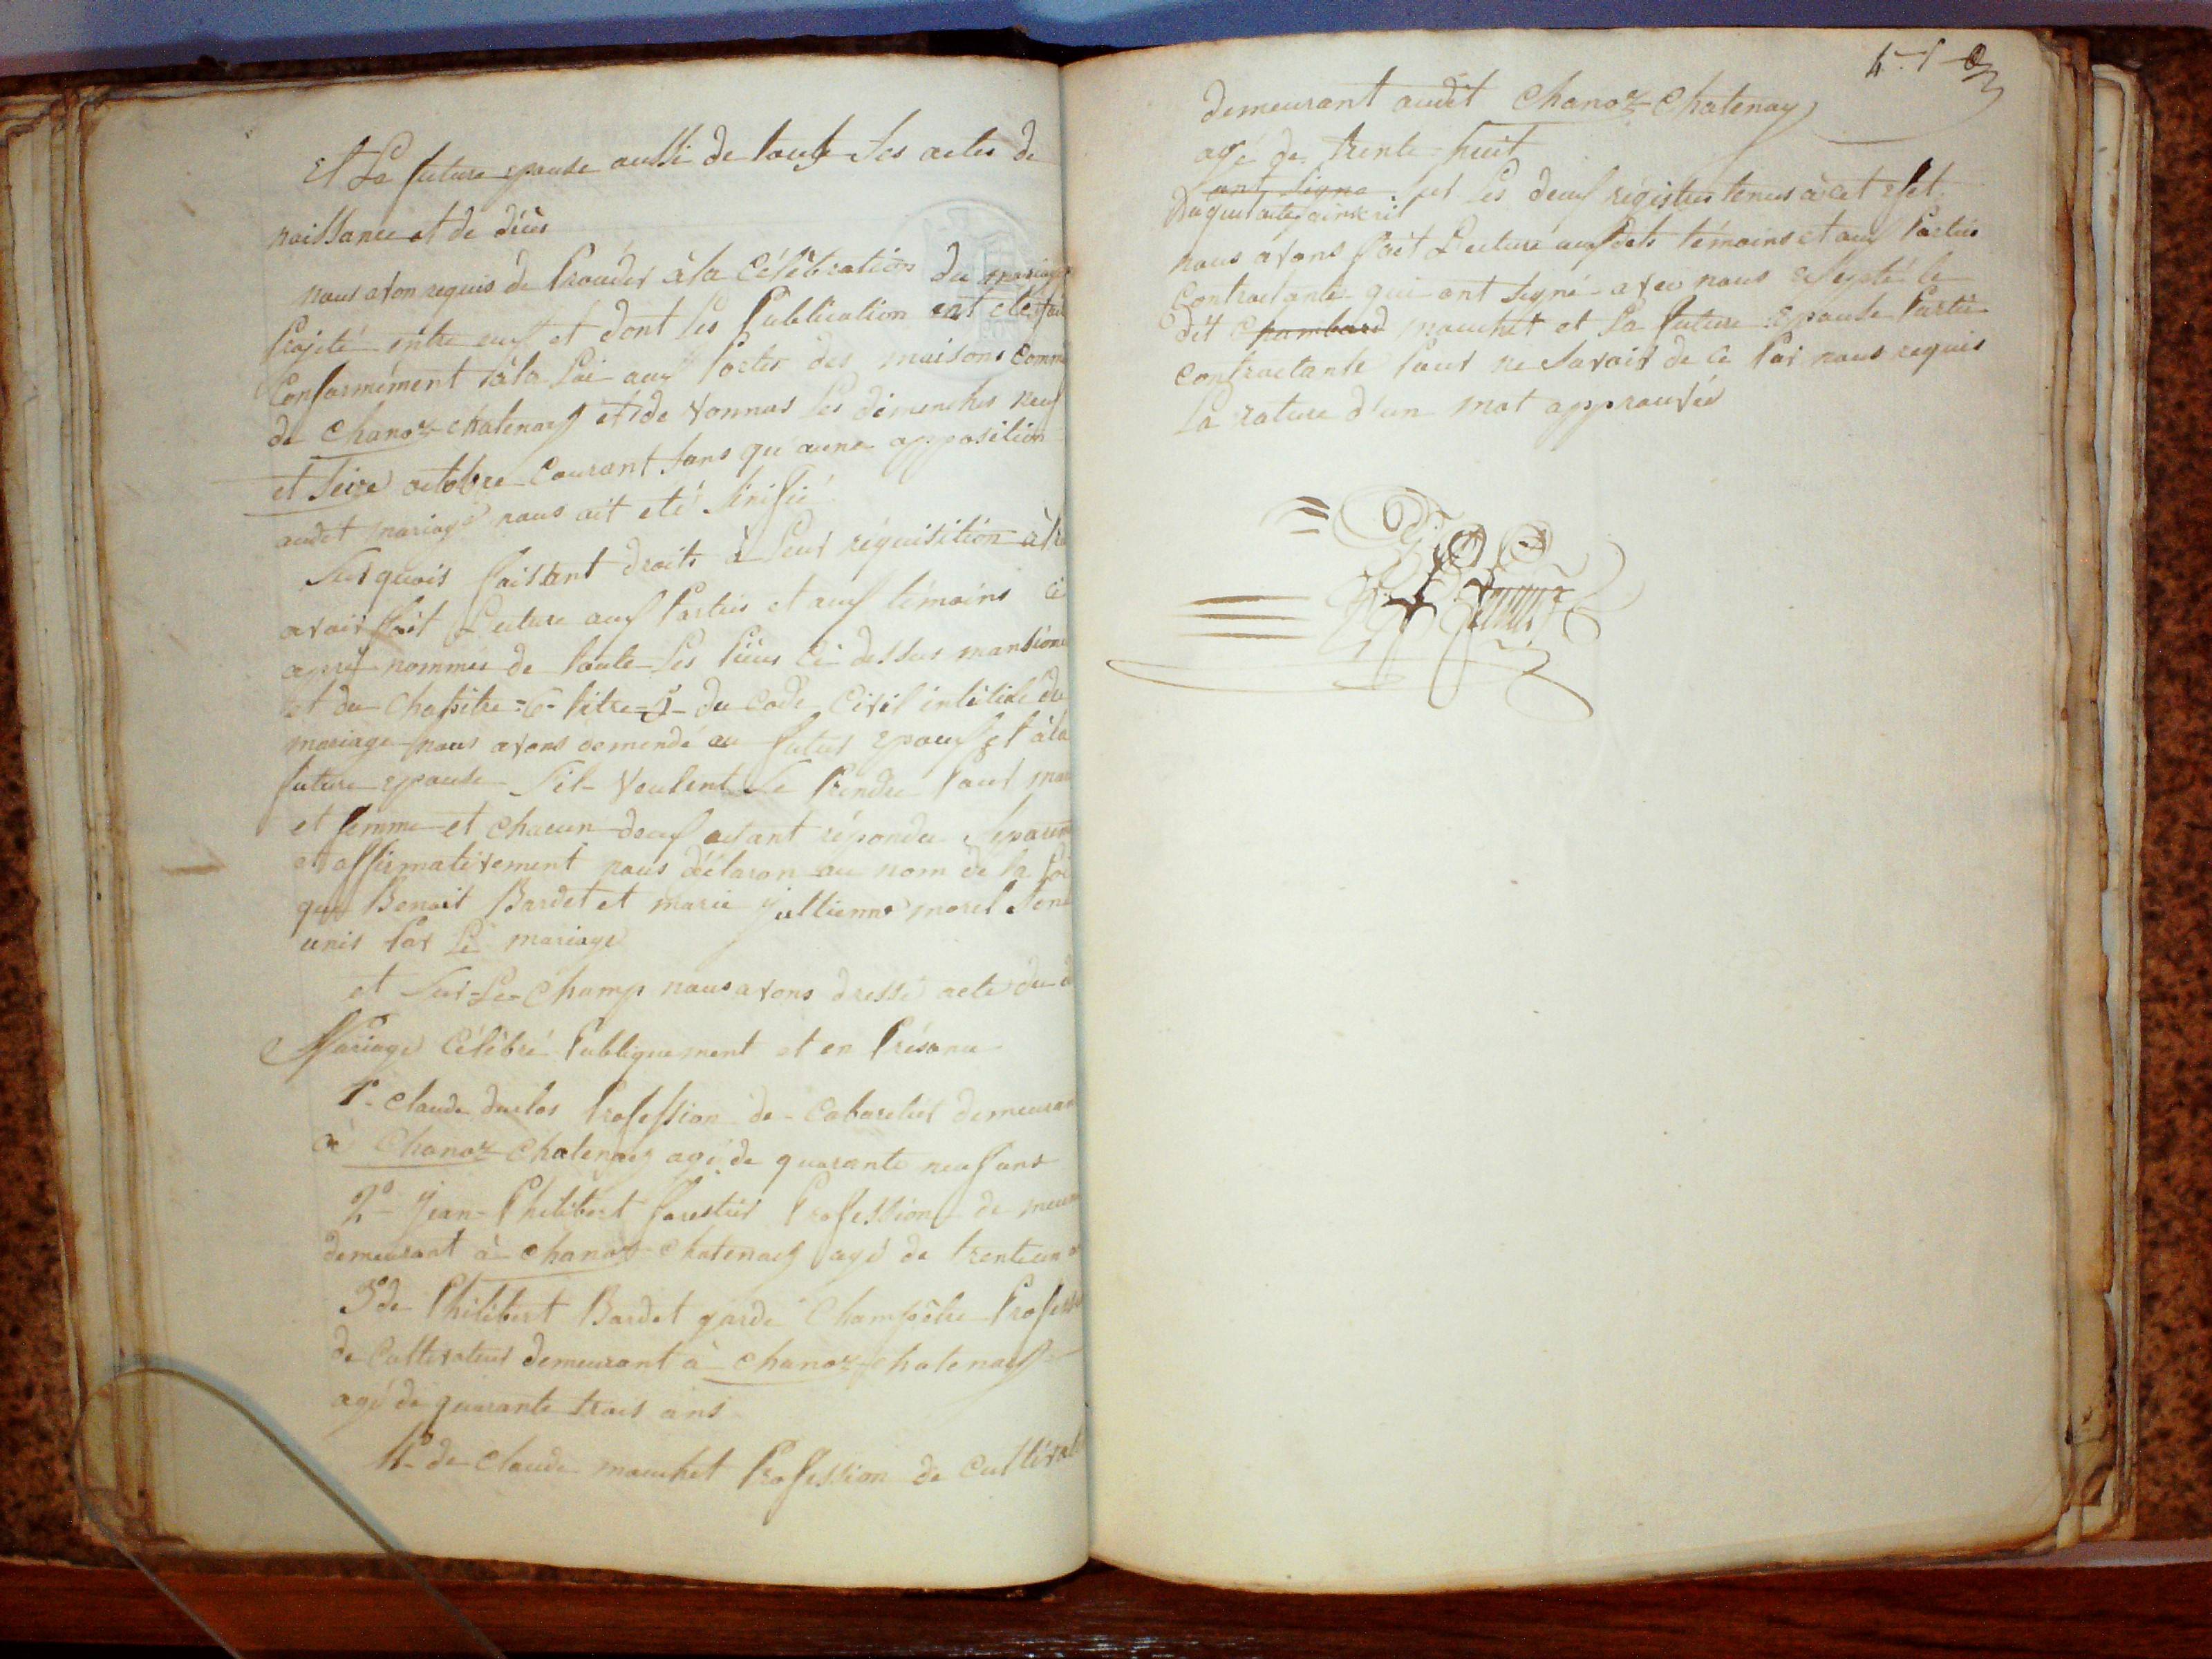 Et La future epouse aussi de toute Ses actes de
naissance et de décès
nous avon requis de Procéder à la Célébration du mariage
Projeté entre eux et dont les Publication ont eté fait
Conformément à la Loi aux Portes des maisons Comm
de Chanoz-chatenay et de vonnas les dimenches neuf
et Seize octobre Courant Sans qu'aune opposition
audet mariage nous ait eté Sinifié
Sur quois faisant droits à Leur réquisition
avoir fait Lecture aux Parties et aux témoins ci
après nommés de toute Les Pièces Ci dessus mansion
et du Chapitre 6 titre 5 du Code Civil intitulé du
mariage nous avons demendé au futur Epoux et à la
future epouse S'il Veulent Se Prendre Pour mari
et femme et chacun deux aiant répondu Séparem
et affirmativement nous déclaron au nom de la Loi
que Benoit Bardet et marie jullienne morel Sont
unis Par Le mariage
et Sur-Le-Champ nous avons dressé acte du d
Mariage Célébré Publiquement et en Présance
1º Claude duclos Profession de Cabaretier demeurant
à Chanoz Chatenay agé de quarante neuf ans
2º jean-Philibert forestier Profession de meun
demeurant à Chanoz Chatenay agé de trenteun
3º de Philibert Bardet garde Champêtre Profess
de Cultivateur demeurant à Chanoz-Chatenay
agé de quarante trois ans
4º de Claude mouchet Profession de Cultivat
demeurant audit Chanoz-Chatenay
agé de trente-huit
ont Signe Sur Les deux régistres tenus à cet efet
Duquel acte
nous avons fait Lecture aux dets témoins et aux Parties
Contractante qui ont Signé avec nous Excepté le
dit Chambard mouchet et la future Epouse Partie
contractante Pour ne Savoir de Ce Par nous requis
La rature d'un mot approuvée